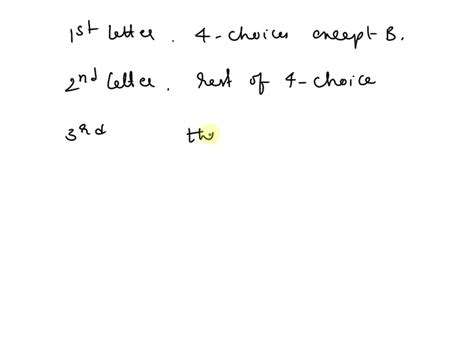 1st letter. 4-choices except B.
2nd letter. rest of 4-choice
3rd th